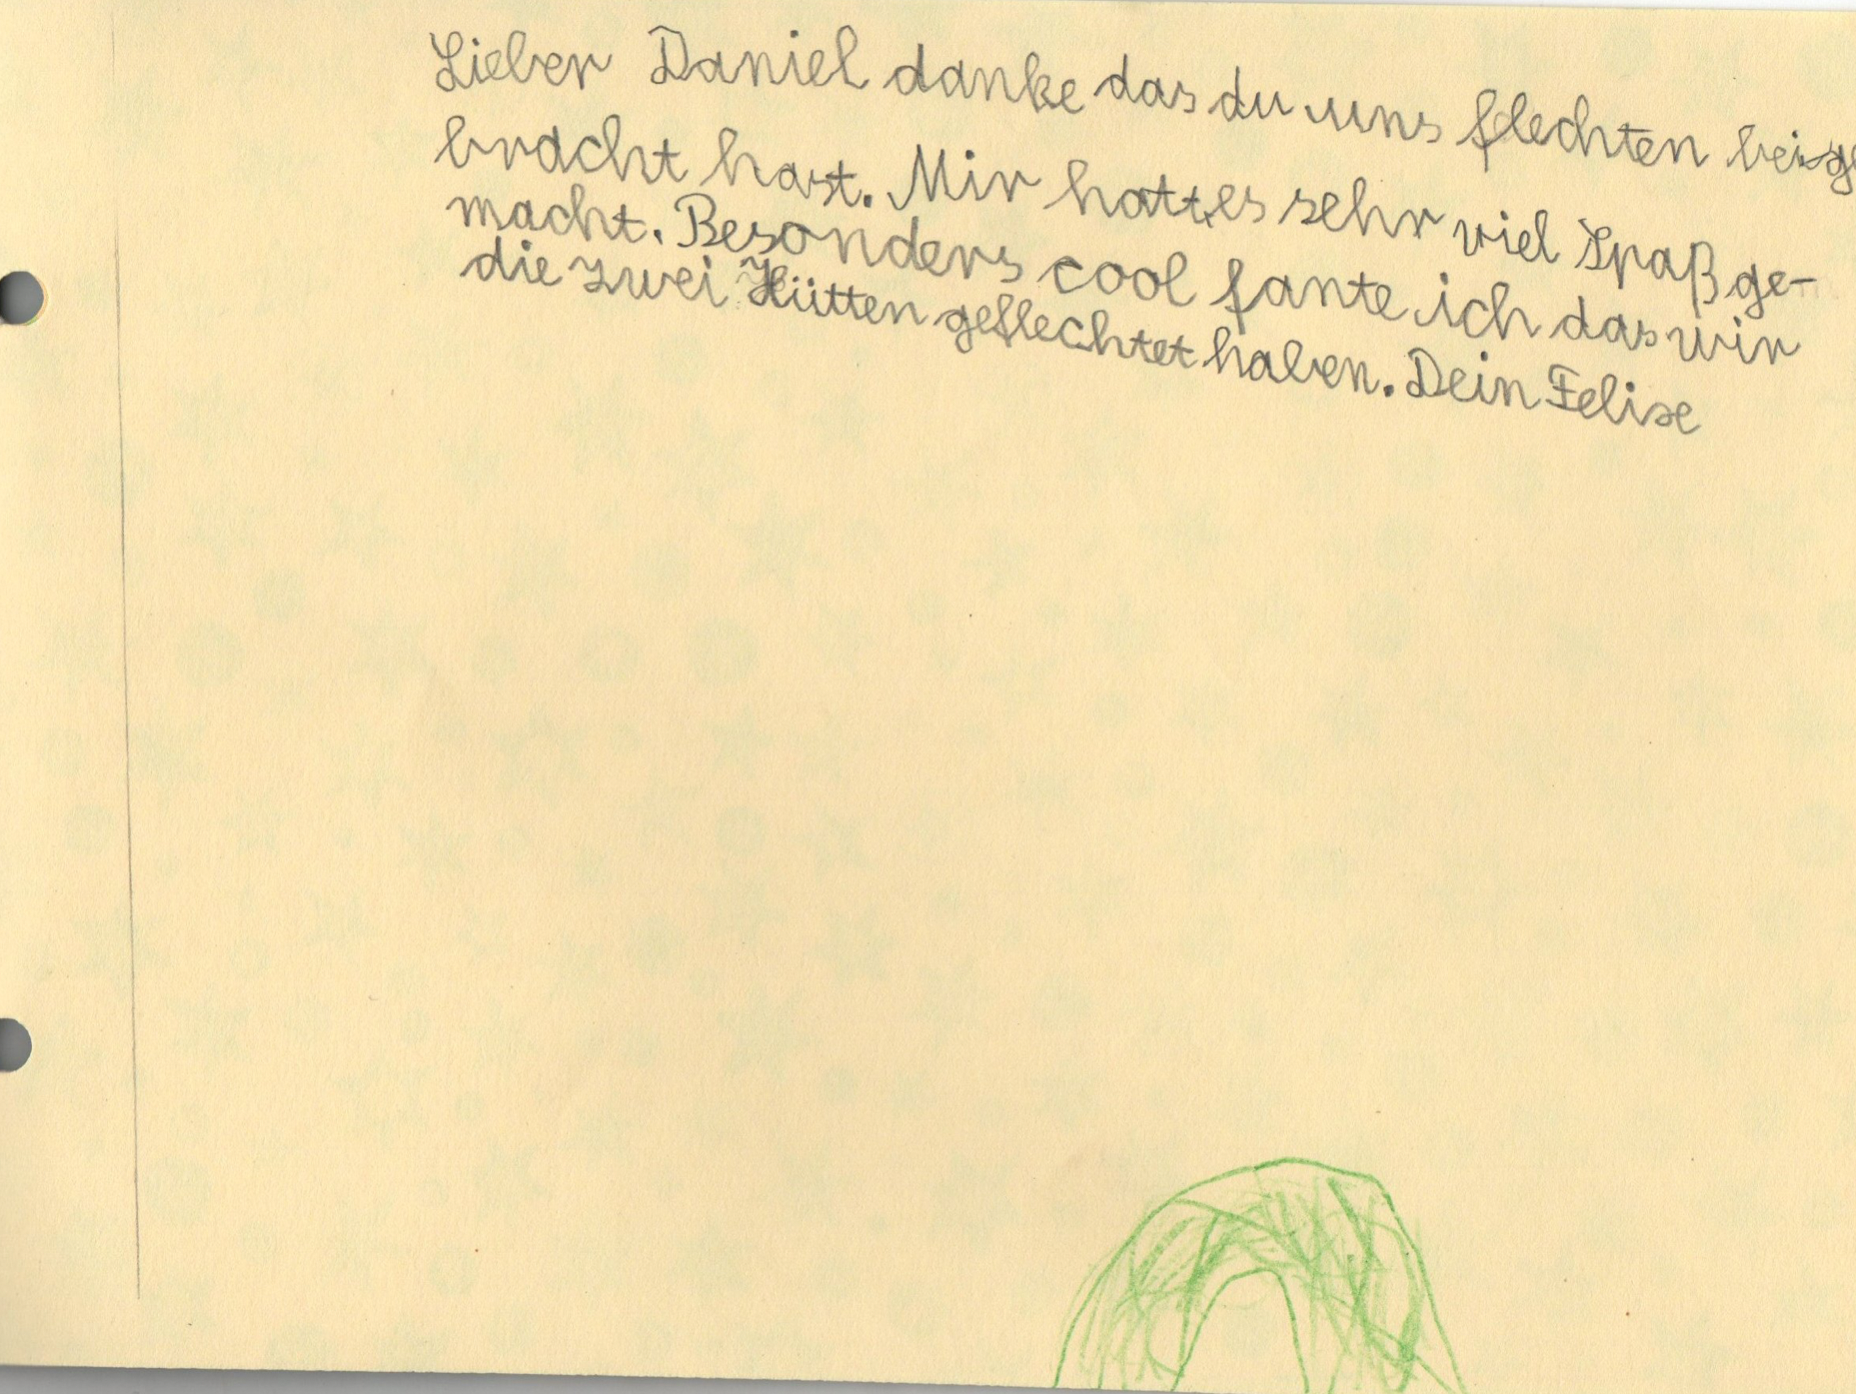 Lieber Daniel danke das du uns flechten beige
bracht hast. Mir hattes sehr viel Spaß ge-
macht. Besonders cool fante ich das wir
die zwei Hütten geflechtet haben. Dein Felise